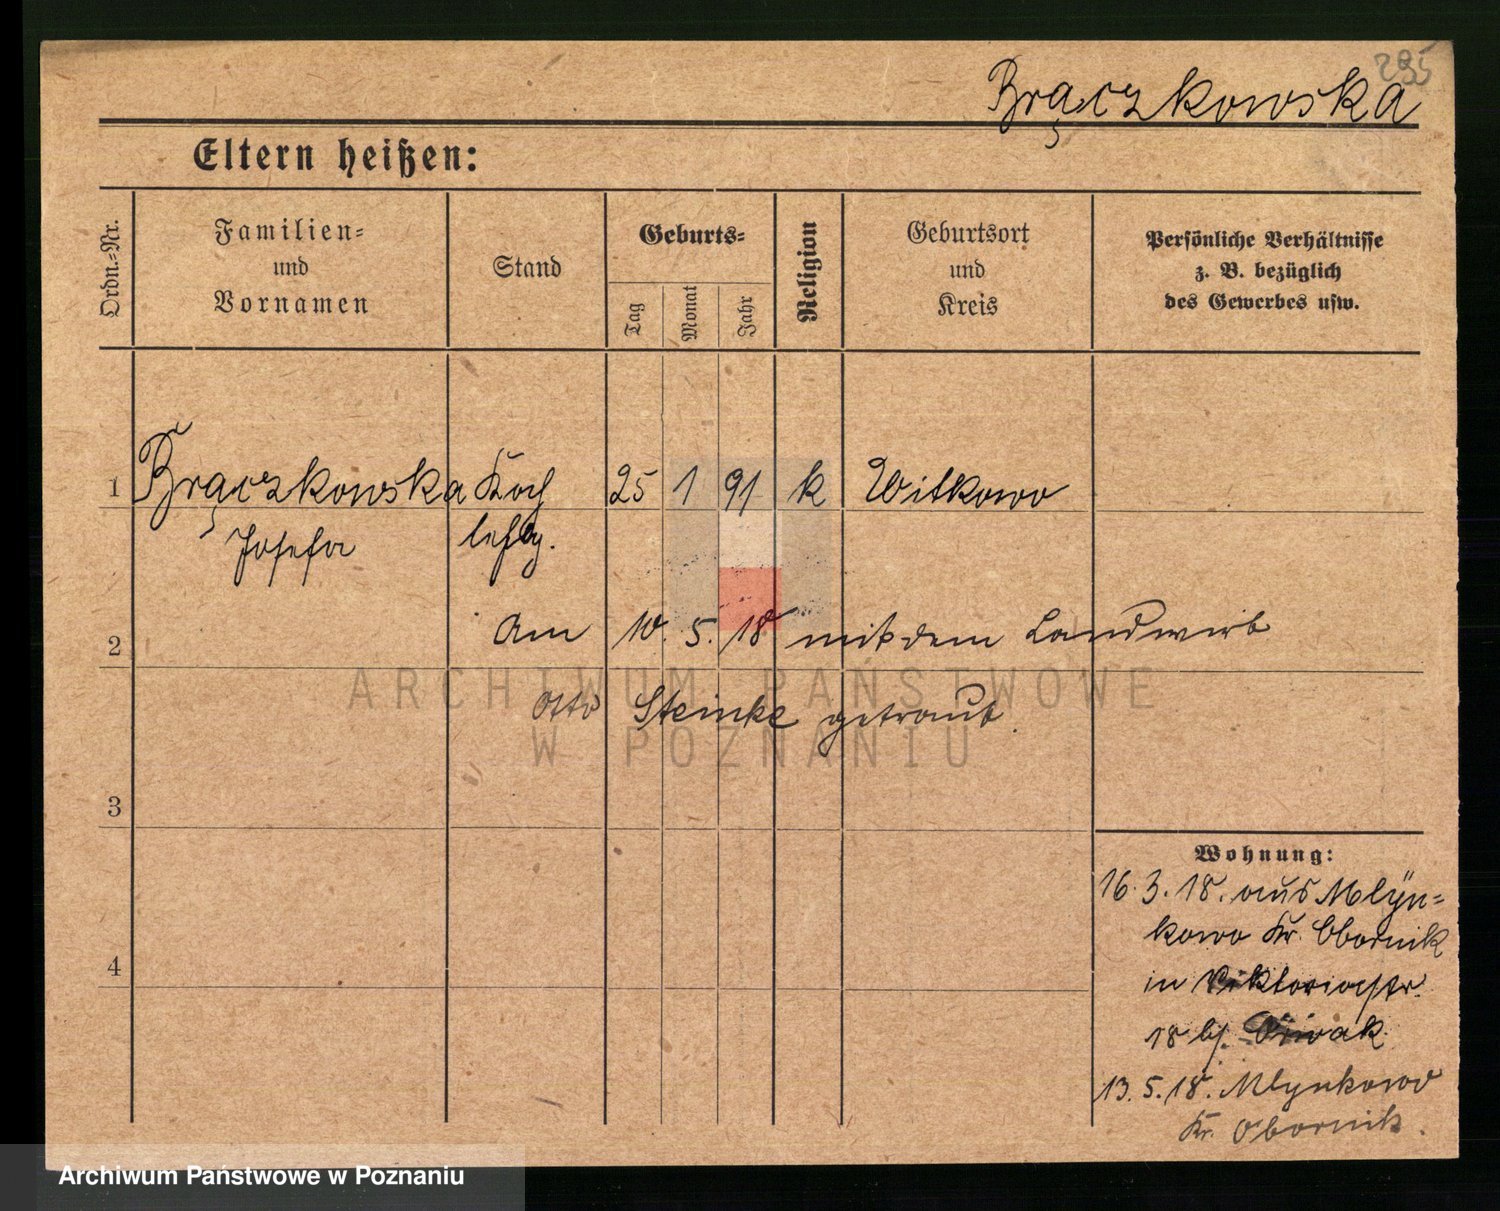 295
Brączkowska
Eltern heißen:
Ordn.-Nr.
Familien-
und
Vornamen
Stand
Geburts-
Tag
Monat
Jahr
Religion
Geburtsort
und
Kreis
Persönliche Verhältnisse
z. B. bezüglich
des Gewerbes usw.
1 Brączkowska Koch 25 1 91 k Witkowo
Josefa
Am 10. 5. 18 mit dem Landwirt
2
Otto Steinke getraut.
3
Wohnung:
16. 3. 18. aus Mlÿn-
kowo Kr. Obornik
4
in Viktoriastr.
18 bj.
13. 5. 18. Mlynkowo
Kr. Obornik.
ARCHIWUM PAŃSTWOWE
W POZNANIU
Archiwum Państwowe w Poznaniu